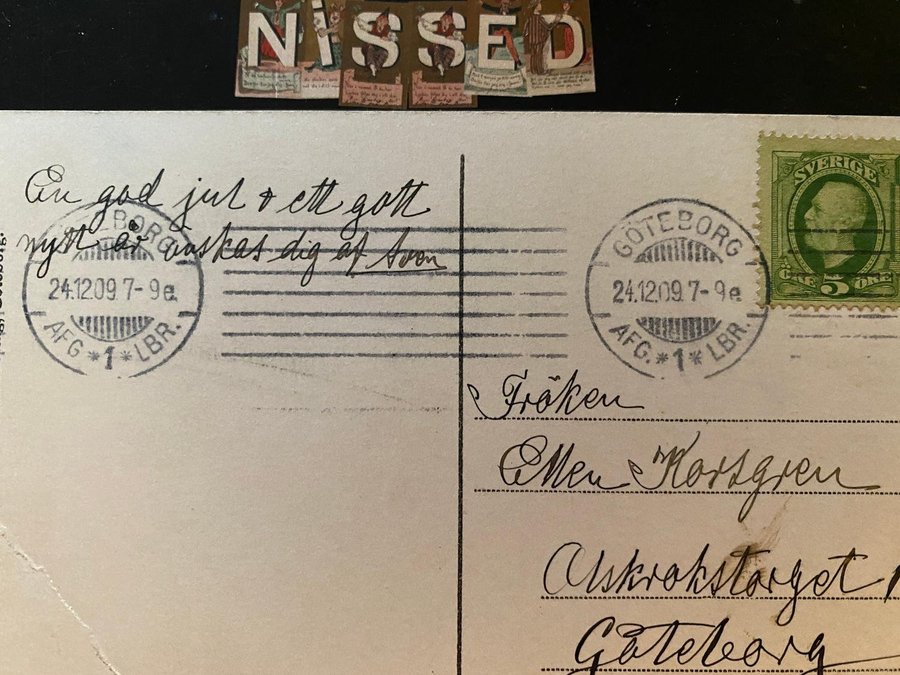 NiSSED
En god jul & ett gott
nytt år önskas dig af Sven
GÖTEBORG
24.12.09.7-9e.
AFG. *1* LBR.
GÖTEBORG
24.12.09.7-9e
AFG. *1* LBR.
SVERIGE
ÖRE 5 ÖRE
Fröken
Ellen Korsgren
Olskrokstorget
Göteborg